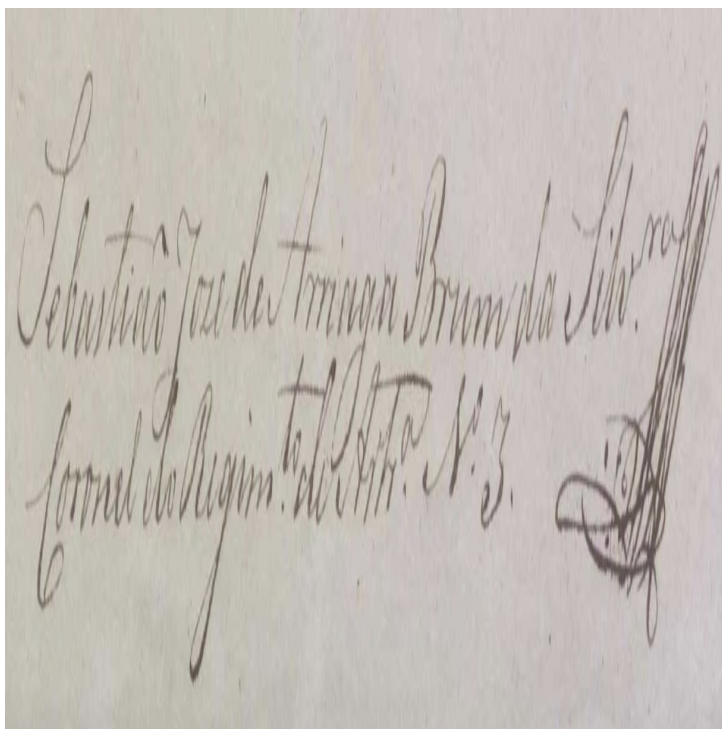 Sebastiaõ Joze de Arriaga Brum da Silv.ra
Coronel do Regim.to de Art.a N.o 3.